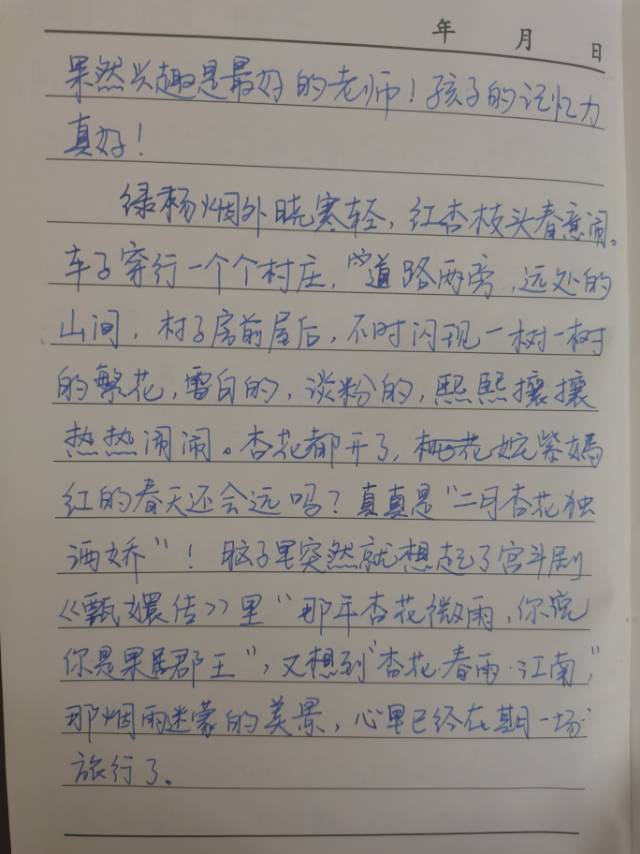 年 月 日
果然兴趣是最好的老师！孩子的记忆力
真好！
绿杨烟外晓寒轻，红杏枝头春意闹。
车子穿行一个个村庄，道路两旁，远处的
山间，村子房前屋后，不时闪现一树一树
的繁花，雪白的，淡粉的，熙熙攘攘
热热闹闹。杏花都开了，桃花姹紫嫣
红的春天还会远吗？真真是“二月杏花独
洒娇”！脑子里突然就想起了宫斗剧
《甄嬛传》里“那年杏花微雨，你说
你是果郡王”，又想到“杏花·春雨·江南”，
那烟雨迷蒙的美景，心里已经在期一场
旅行了。